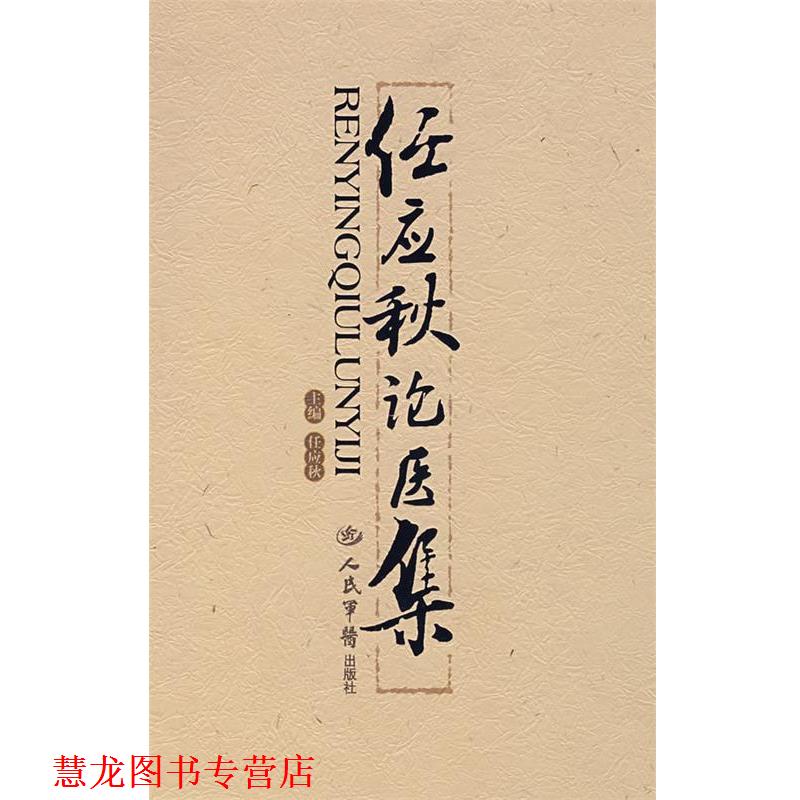 任应秋论医集
RENYINGQIULUNYIJI
主编 任应秋
人民军醫出版社
慧龙图书专营店